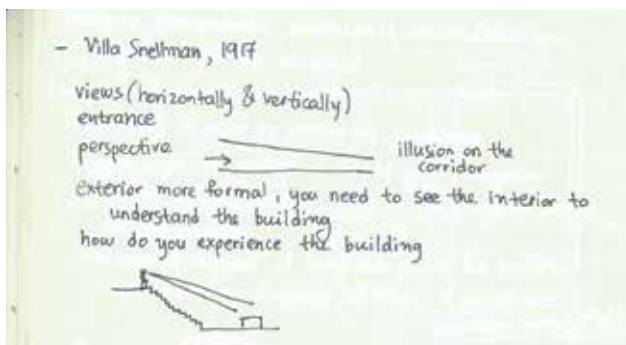 - Villa Snellman, 1917
views (horizontally & vertically)
entrance
perspective
illusion on the
corridor
exterior more formal, you need to see the interior to
understand the building
how do you experience the building